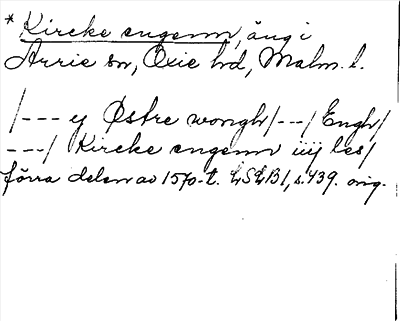 * Kircke engenn, äng i
Arrie sn, Oxie hd, Malm. l.
/--- ej Østre wongh/---/ Engh/
---/ Kircke engenn iiij les/
förra delen av 1570-t. LSLB1, s. 439. orig.